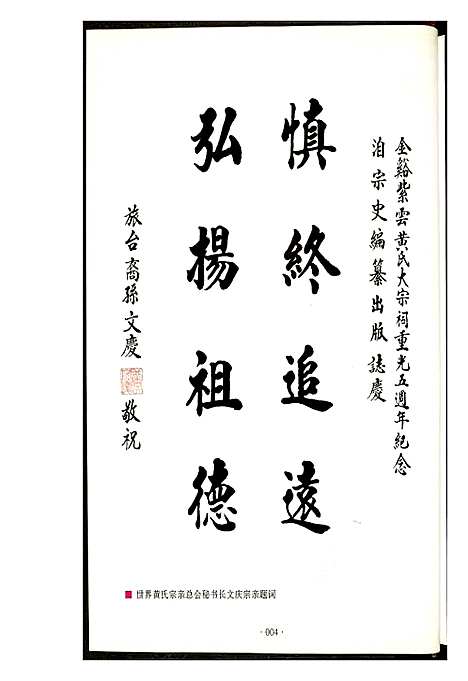 金谿紫雲黃氏大宗祠重光五週年紀念
洎宗史編纂出版誌慶
慎終追遠
弘揚祖德
旅台裔孫文慶
敬祝
世界黄氏宗亲总会秘书长文庆宗亲题词
·004·